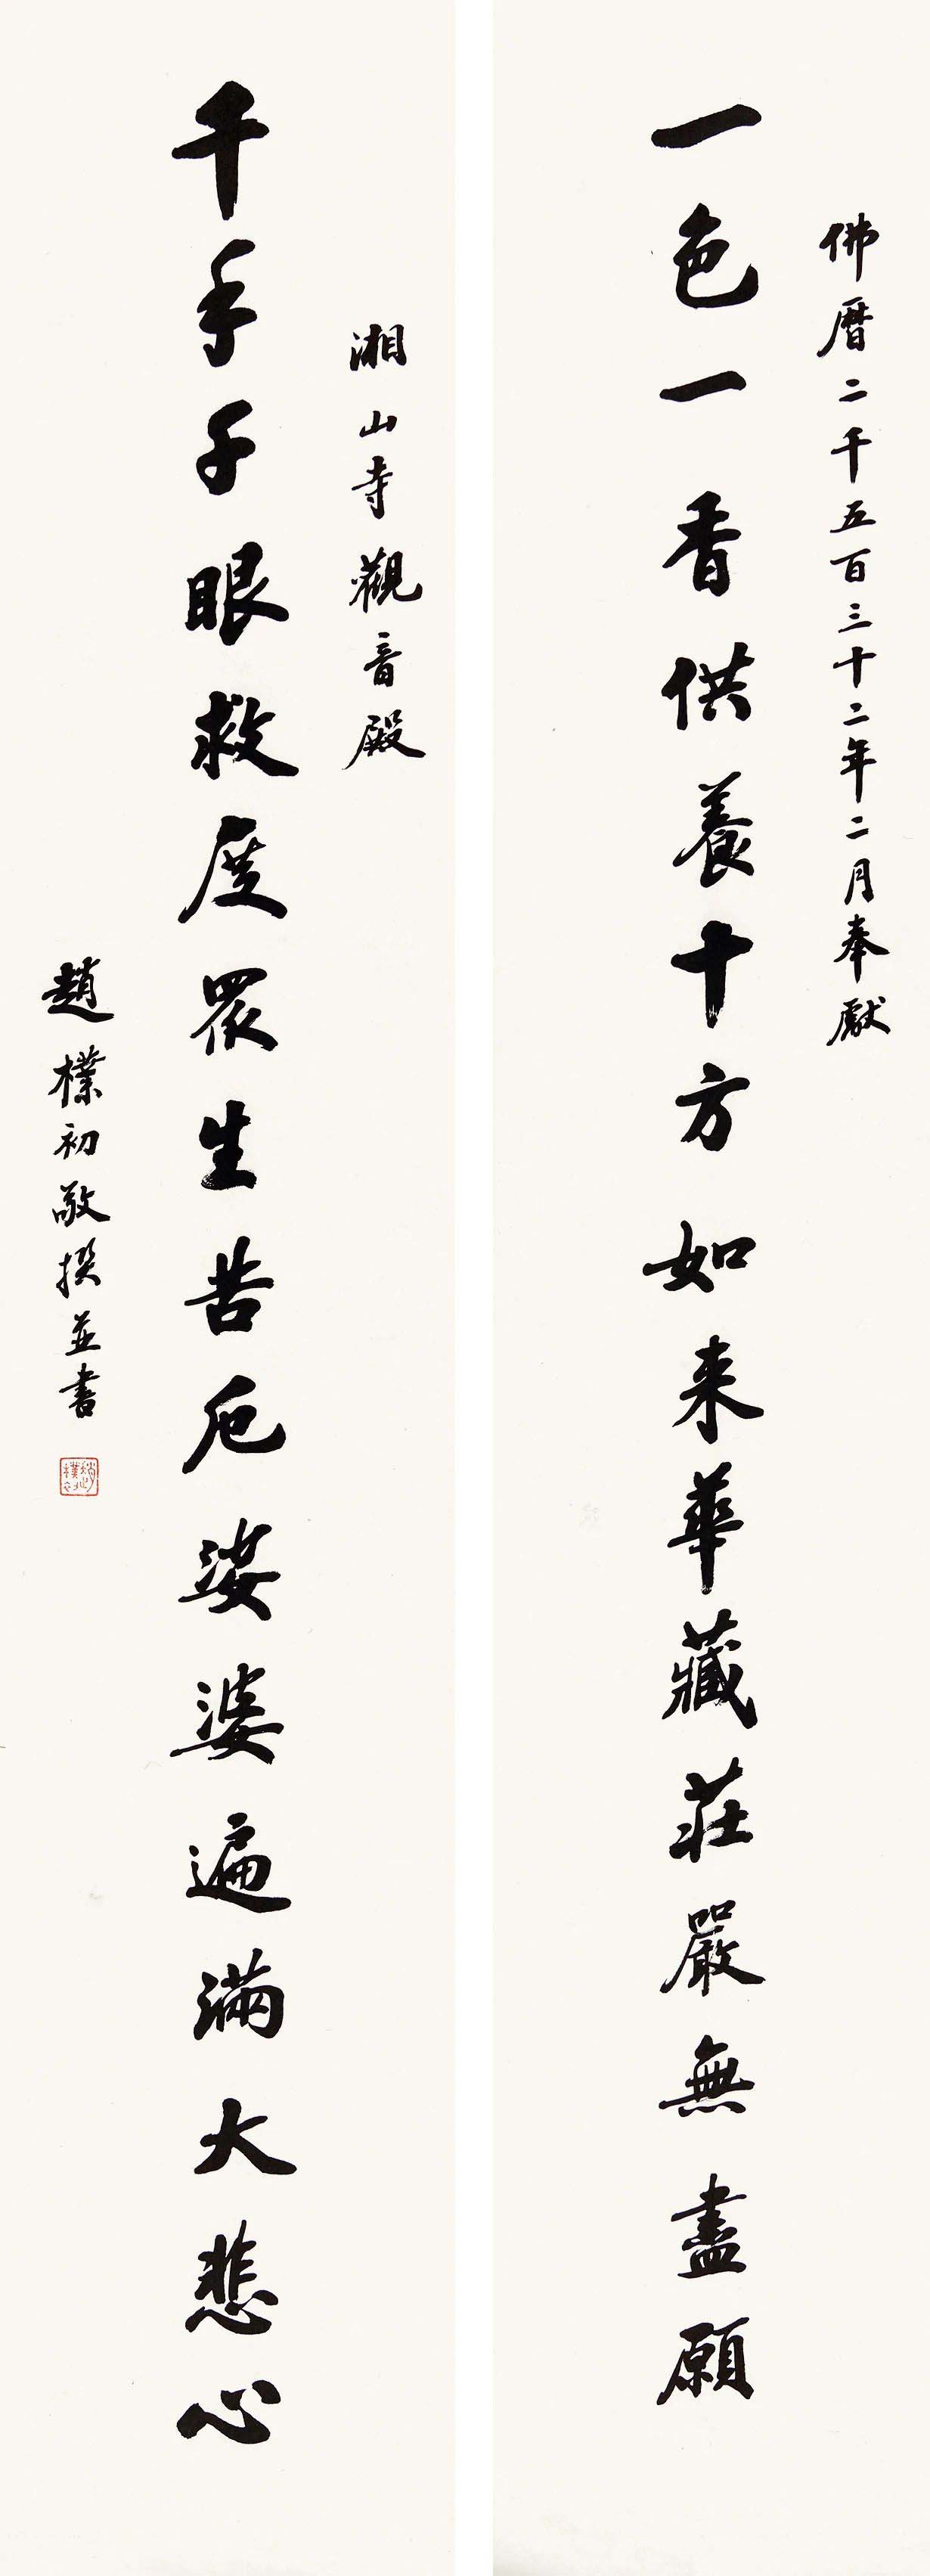 佛曆二千五百三十二年二月奉獻
一色一香供養十方如来華藏莊嚴無盡願
湘山寺觀音殿
千手千眼救度眾生苦厄娑婆遍滿大悲心
趙樸初敬撰並書
趙樸初